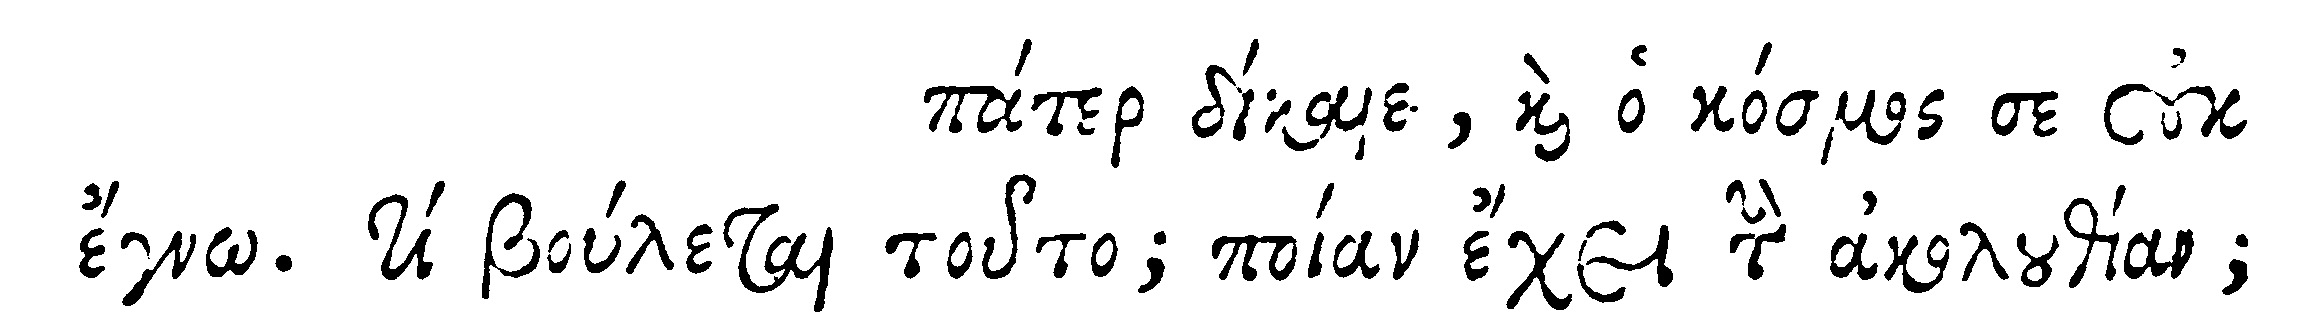 πάτερ δίκαιε, καὶ ὁ κόσμος σε οὐκ
ἔγνω. τί βούλεται τοῦτο; ποίαν ἔχει τὴν ἀκολουθίαν;